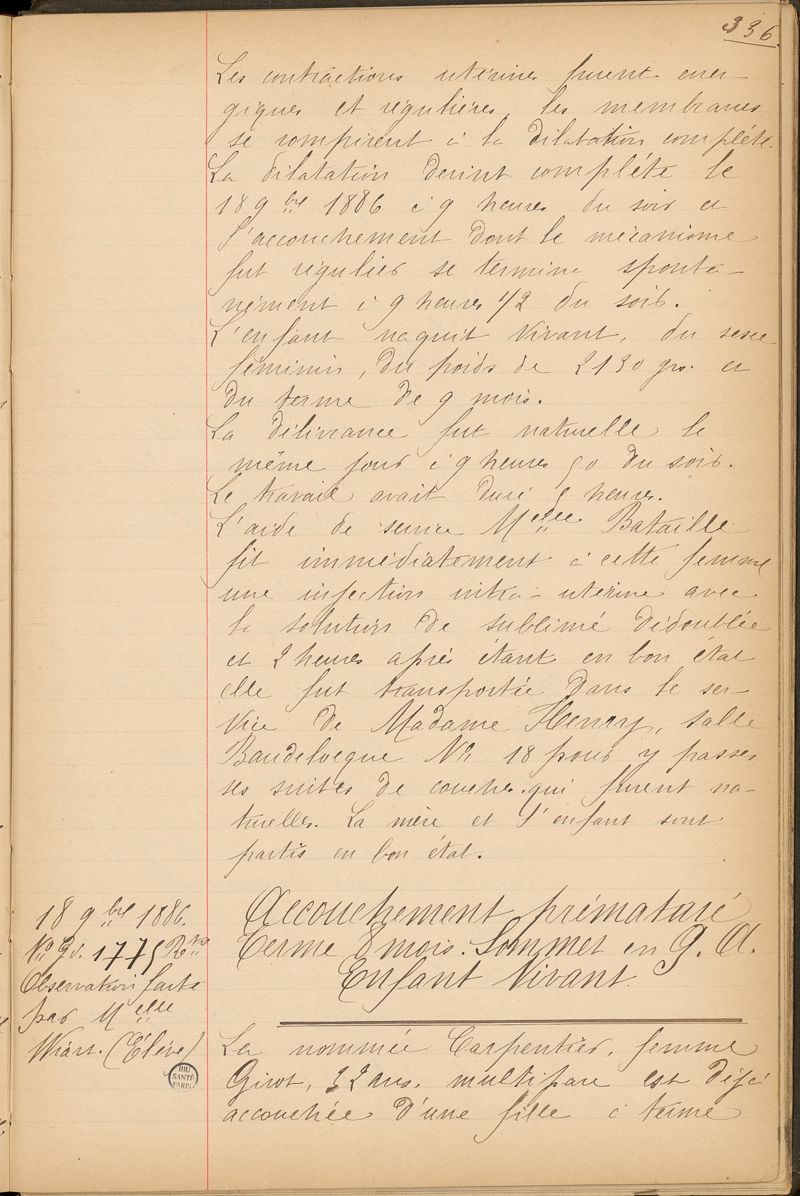 336
Les contractions utérines furent éner-
giques et régulières, les membranes
se rompirent à la dilatation complète.
La dilatation devint complète le
18 9bre 1886 à 9 heures du soir et
l'accouchement dont le mécanisme
fut régulier se termina sponta-
nément à 9 heures 1/2 du soir.
L'enfant naquit vivant, du sexe
féminin, du poids de 2130 grs. et
du terme de 9 mois.
La délivrance fut naturelle le
même jour à 9 heures 50 du soir.
Le travail avait duré heures.
L'aide de service Melle Bataille
fit immédiatement à cette femme
une injection intra-utérine avec
la solution de sublimé dédoublée
et 2 heures après étant en bon état
elle fut transportée dans le ser-
vice de Madame Henry, salle
Baudelocque No 18 pour y passer
ses suites de couches qui furent na-
turelles. La mère et l'enfant sont
partis en bon état.
18 9bre 1886.
No Gl. 1775 Rno
Observation faite
par Melle
Wiart. (Elève)
BIU
SANTÉ
PARIS
Accouchement prématuré
Terme 8 mois. Sommet en G. A.
Enfant Vivant.
La nommée Carpentier, femme
Girot, 32 ans, multipare est déjà
accouchée d'une fille à terme